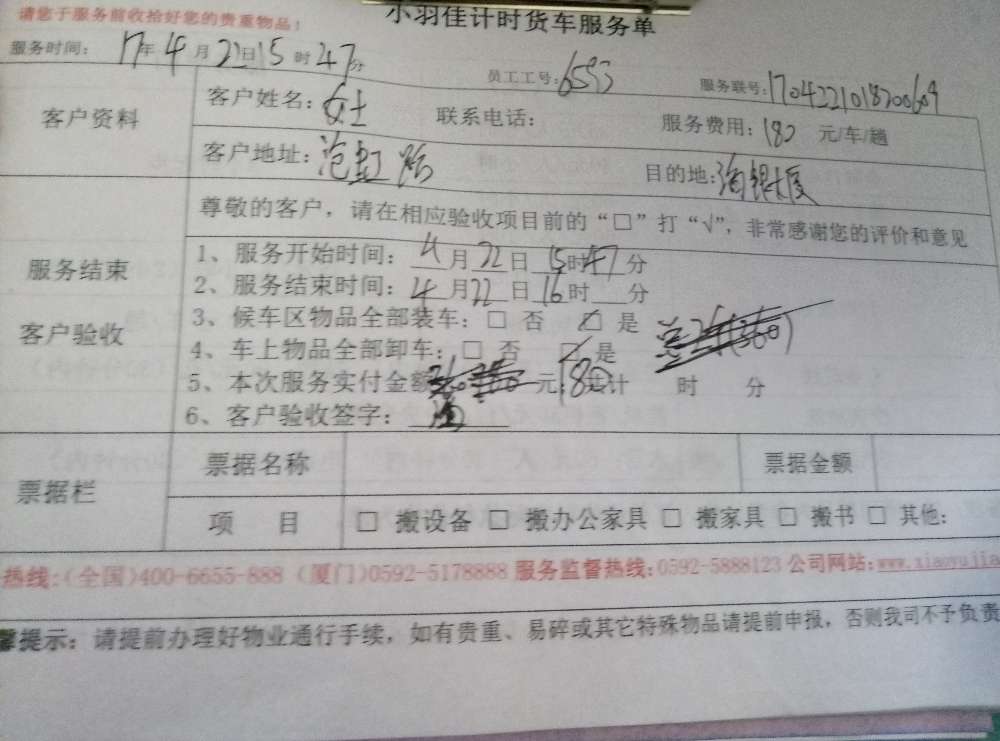 请您于服务前收拾好您的贵重物品！
小羽佳计时货车服务单
服务时间： 17年4月22日15时47分
员工工号：6593
服务联号：1704221018200609
客户资料
客户姓名：女士 联系电话： 服务费用：180 元/车/趟
客户地址： 目的地：
服务结束
客户验收
尊敬的客户，请在相应验收项目前的“□”打“√”，非常感谢您的评价和意见
1、服务开始时间：4月22日15时47分
2、服务结束时间：4月22日16时 分
3、候车区物品全部装车：□ 否 ☑ 是
4、车上物品全部卸车：□ 否 ☑ 是
5、本次服务实付金额 元 180 共计 时 分
6、客户验收签字：
票据栏
票据名称 票据金额
项 目 □ 搬设备 □ 搬办公家具 □ 搬家具 □ 搬书 □ 其他：
热线：(全国)400-6655-888 (厦门)0592-5178888 服务监督热线：0592-5888123 公司网站：www.xiaoyujia
馨提示：请提前办理好物业通行手续，如有贵重、易碎或其它特殊物品请提前申报，否则我司不予负责